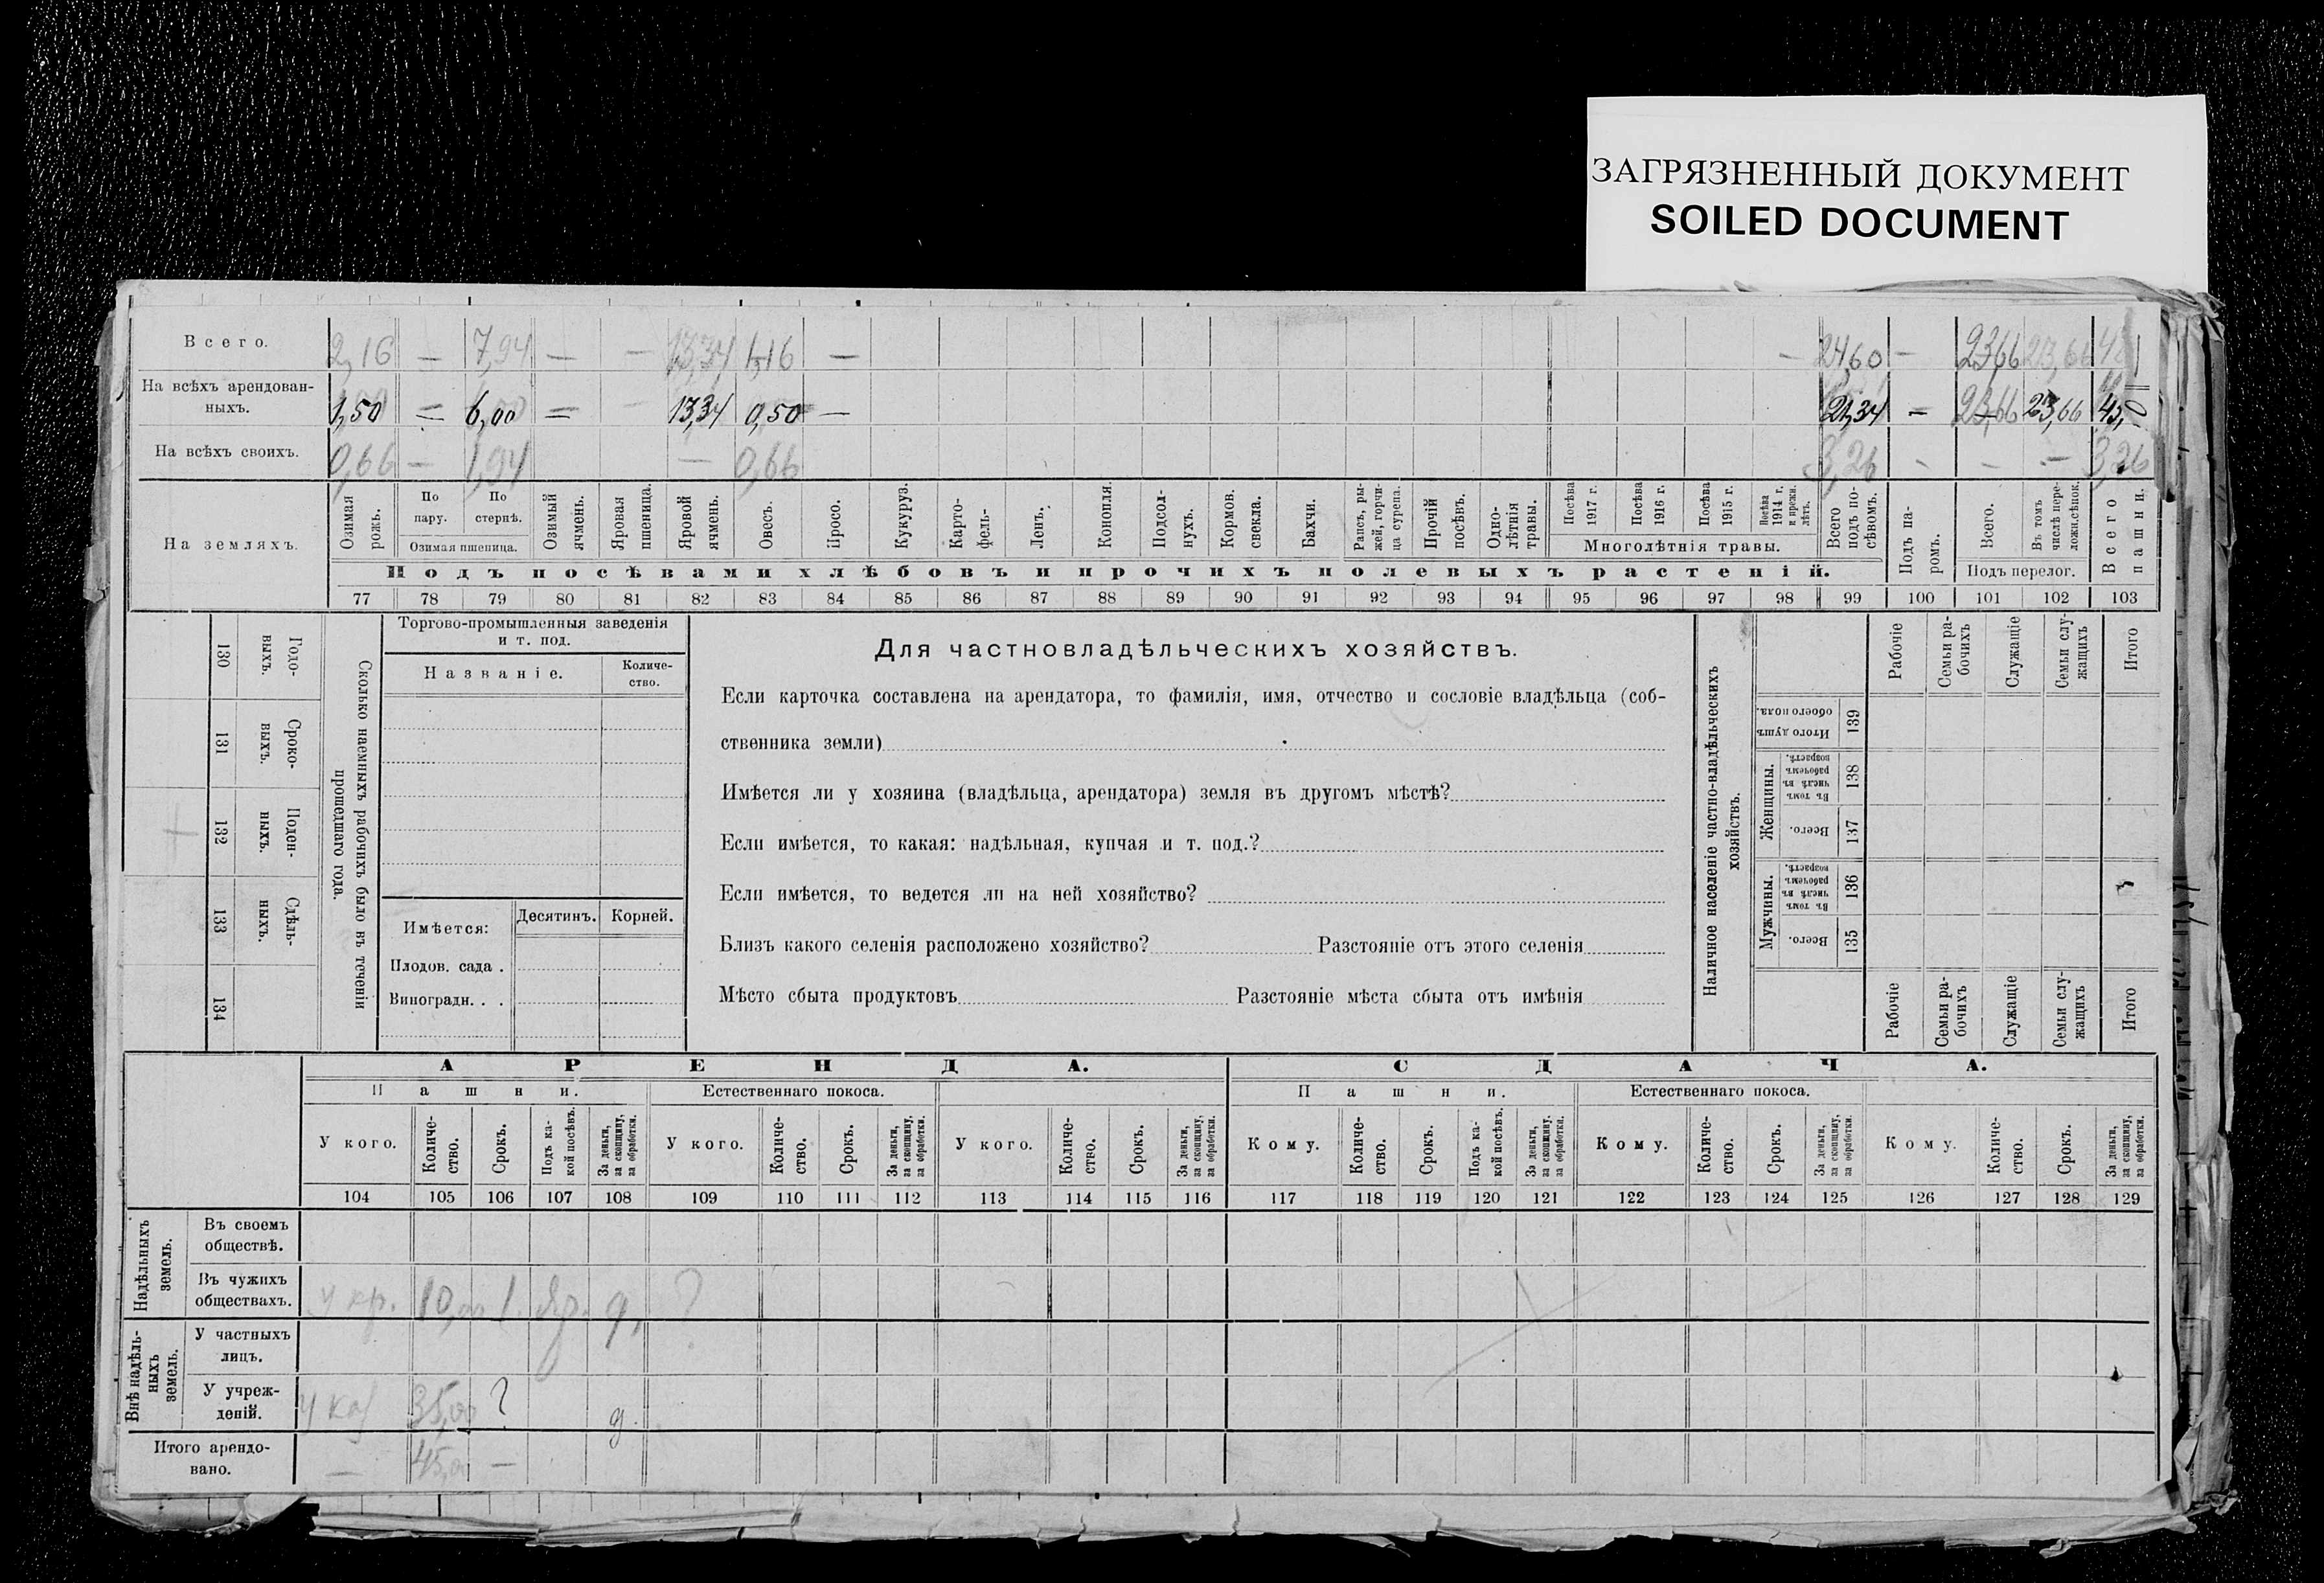 ЗАГРЯЗНЕННЫЙ ДОКУМЕНТ
SOILED DOCUMENT
Всего. 2,16 — 7,94 — — 13,34 1,16 — — 24,60 — 23,66 23,66
На всѣхъ арендован-
ныхъ. 1,50 — 6,00 — — 13,34 0,50 — 21,34 — 23,66 23,66 45,0
На всѣхъ своихъ. 0,66 — 1,94 — 0,66 3,26 - - — 3,26
На земляхъ.
Озимая рожь.
По пару.
По стернѣ.
Озимая пшеница.
Озимый ячмень.
Яровая пшеница.
Яровой ячмень.
Овесъ.
Просо.
Кукуруз.
Карто-
фель-
Ленъ.
Конопля.
Подсол-
нухъ.
Кормов.
свекла.
Бахчи.
Рапсъ, ры-
жей, горчи-
ца сурепа.
Прочій
посѣвъ.
Одно-
лѣтнія
травы.
Посѣва
1917 г.
Посѣва
1916 г.
Посѣва
1915 г.
Посѣва
1914 г.
и прежн.
лѣтъ.
Многолѣтнія травы.
Всего
подъ по-
сѣвомъ.
Подъ па-
ромъ.
Всего.
Въ томъ
числѣ пере-
ложн.сѣнок.
Подъ перелог.
Всего
пашни.
Подъ посѣвами хлѣбовъ и прочихъ полевыхъ растеній.
77 78 79 80 81 82 83 84 85 86 87 88 89 90 91 92 93 94 95 96 97 98 99 100 101 102 103
130 Годо-
выхъ.
131 Сроко-
выхъ.
132 Поден-
ныхъ.
133 Сдѣль-
ныхъ.
134
Сколько наемныхъ рабочихъ было въ теченіи
прошедшаго года.
Торгово-промышленныя заведенія
и т. под.
Названіе.
Количе-
ство.
Имѣется:
Десятинъ. Корней.
Плодов. сада .
Виноградн. . .
Для частновладѣльческихъ хозяйствъ.
Если карточка составлена на арендатора, то фамилія, имя, отчество и сословіе владѣльца (соб-
ственника земли)
Имѣется ли у хозяина (владѣльца, арендатора) земля въ другомъ мѣстѣ?
Если имѣется, то какая: надѣльная, купчая и т. под.?
Если имѣется, то ведется ли на ней хозяйство?
Близъ какого селенія расположено хозяйство? Разстояніе отъ этого селенія
Мѣсто сбыта продуктовъ Разстояніе мѣста сбыта отъ имѣнія
Наличное населеніе частно-владѣльческихъ
хозяйствъ.
Рабочіе
Семьи ра-
бочихъ
Служащіе
Семьи слу-
жащихъ
Итого
Итого душъ
обоего пола. 139
Женщины.
Въ томъ
числѣ въ
рабочемъ
возрастѣ. 138
Всего. 137
Мужчины.
Въ томъ
числѣ въ
рабочемъ
возрастѣ. 136
Всего. 135
Рабочіе
Семьи ра-
бочихъ
Служащіе
Семьи слу-
жащихъ
Итого
АРЕНДА. СДАЧА.
Пашни. Естественнаго покоса. Пашни. Естественнаго покоса.
У кого.
Количе-
ство.
Срокъ.
Подъ ка-
кой посѣвъ.
За деньги,
за скопщину,
за обработки.
У кого.
Количе-
ство.
Срокъ.
За деньги,
за скопщину,
за обработки.
У кого.
Количе-
ство.
Срокъ.
За деньги,
за скопщину,
за обработки.
Кому.
Количе-
ство.
Срокъ.
Подъ ка-
кой посѣвъ.
За деньги,
за скопщину,
за обработки.
Кому.
Количе-
ство.
Срокъ.
За деньги,
за скопщину,
за обработки.
Кому.
Количе-
ство.
Срокъ.
За деньги,
за скопщину,
за обработки.
104 105 106 107 108 109 110 111 112 113 114 115 116 117 118 119 120 121 122 123 124 125 126 127 128 129
Надѣльныхъ
земель.
Въ своемъ
обществѣ.
Въ чужихъ
обществахъ. у кр. 10,00 1. Яр. д, ?
Внѣ надѣль-
ныхъ
земель.
У частныхъ
лицъ.
У учреж-
деній. у каз 35,00 ? д.
Итого арендо-
вано. — 45,00 —